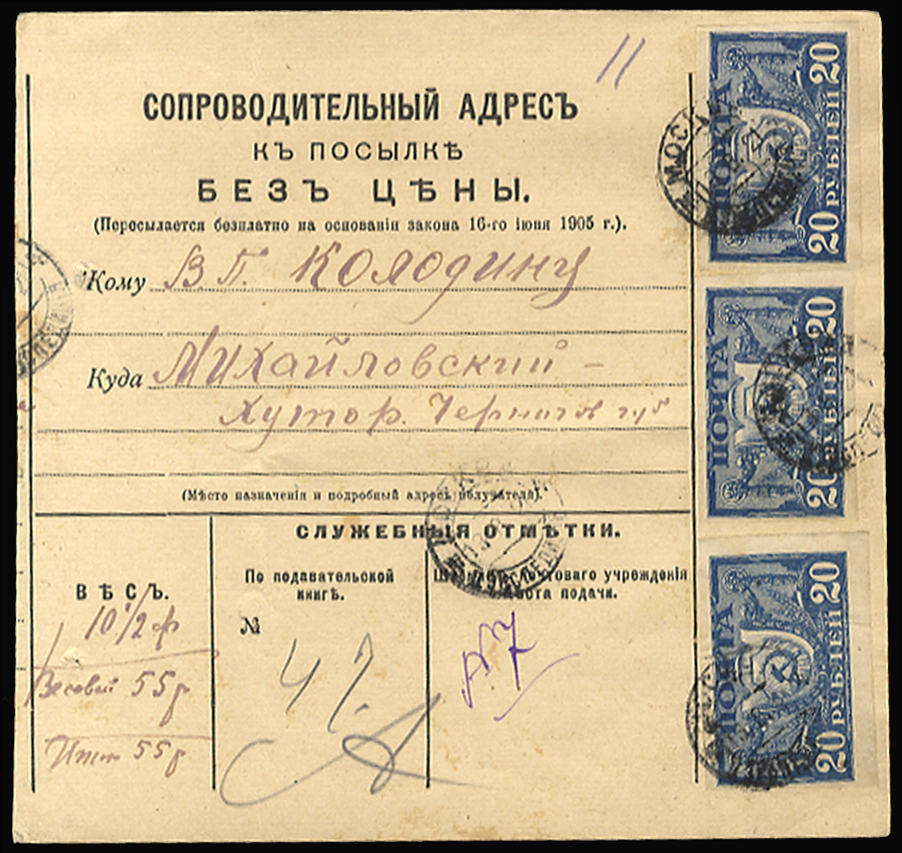 11
СОПРОВОДИТЕЛЬНЫЙ АДРЕСЪ
КЪ ПОСЫЛКѢ
БЕЗЪ ЦѢНЫ.
(Пересылается безплатно на основаніи закона 16-го іюня 1905 г.).
Кому В. П. Колодину
Куда Михайловский –
Хутор. Чернигов губ
(Мѣсто назначенія и подробный адресъ получателя).
СЛУЖЕБНЫЯ ОТМѢТКИ.
ВѢСЪ.
10 1/2 ф
Весовой 55 р
Итого 55 р
По подавательской
книгѣ.
№
47
почтоваго учрежденія
мѣста подачи.
№ 7
ПОЧТА
20 РУБЛЕЙ 20
МОСКВА
ПОЧТА
20 РУБЛЕЙ 20
ПОЧТА
20 РУБЛЕЙ 20
МОСКВА